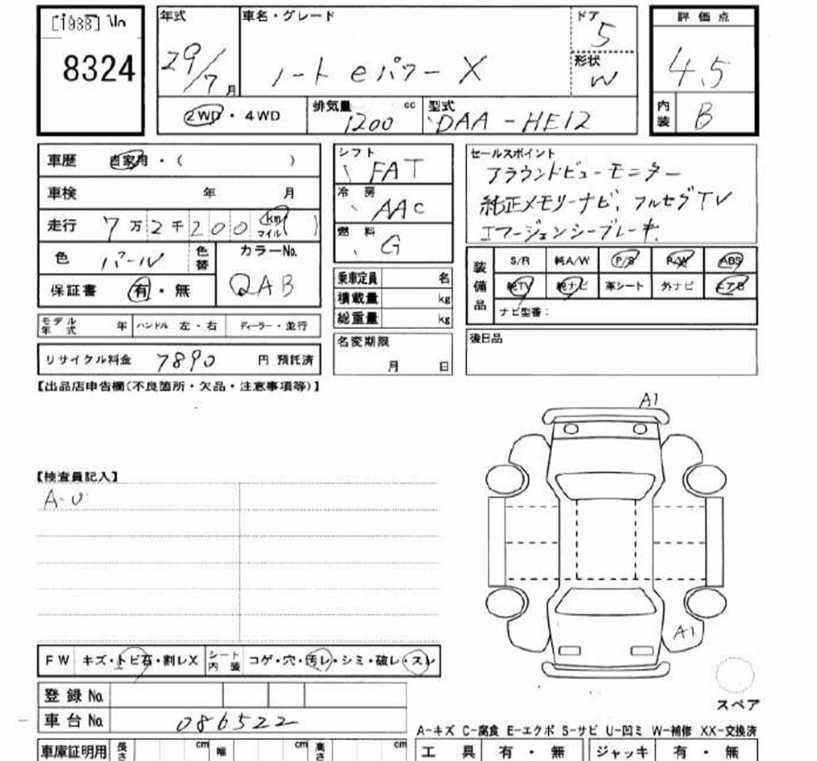 8324
年式 29/7月
車名・グレード ノート eパワー X
ドア 5
形状 W
2WD・4WD
排気量 1200 cc
型式 DAA-HE12
評価点 4.5
内装 B
車歴 自家用・( )
車検 年 月
走行 7万2千200 km マイル ( )
色 パール 色替
カラーNo. QAB
保証書 有・無
モデル年式 年 ハンドル 左・右 ディーラー・並行
リサイクル料金 7890 円 預託済
シフト FAT
冷房 AAC
燃料 G
乗車定員 名
積載量 kg
総重量 kg
名変期限
月 日
セールスポイント
アラウンドビューモニター
純正メモリーナビ、フルセグTV
エマージェンシーブレーキ
装備品
S/R 純A/W P/S P/W ABS
純TV 純ナビ 革シート 外ナビ エアB
ナビ型番:
後日品
【出品店申告欄(不良箇所・欠品・注意事項等)】
【検査員記入】
A-U
A1
A1
FW キズ・トビ石・割レX シート内装 コゲ・穴・汚レ・シミ・破レ・スレ
スペア
登録No.
車台No. 086522
A-キズ C-腐食 E-エクボ S-サビ U-凹ミ W-補修 XX-交換済
車庫証明用 長さ cm 幅 cm 高さ cm
工具 有・無 ジャッキ 有・無